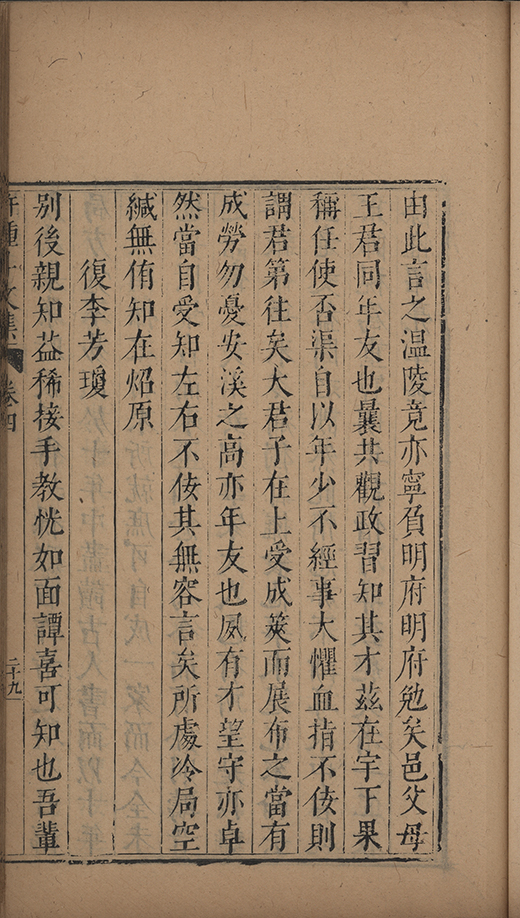 由此言之温陵竟亦寧負明府明府勉矣邑父母
王君同年友也曩共觀政習知其才茲在宇下果
稱任使否渠自以年少不經事大懼血指不佞則
謂君第往矣大君子在上受成筴而展布之當有
成勞勿憂安溪之高亦年友也夙有才望守亦卓
然當自受知左右不佞其無容言矣所處冷局空
緘無侑知在炤原
復李芳瓊
別後親知益稀接手教恍如面譚喜可知也吾輩
許鍾斗文集
卷四
二十九